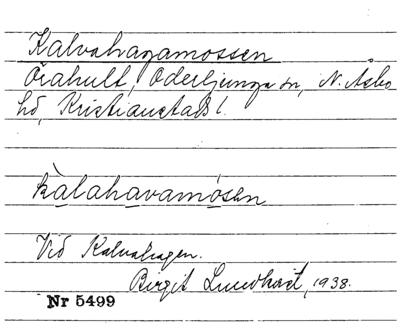 Kalvahagamossen
Örahult, Oderljunga sn, N. Åsbo
hd, Kristianstads l.
kàlahavamósen
Vid Kalvahagen.
Birgit Lundkvist, 1938.
Nr 5499